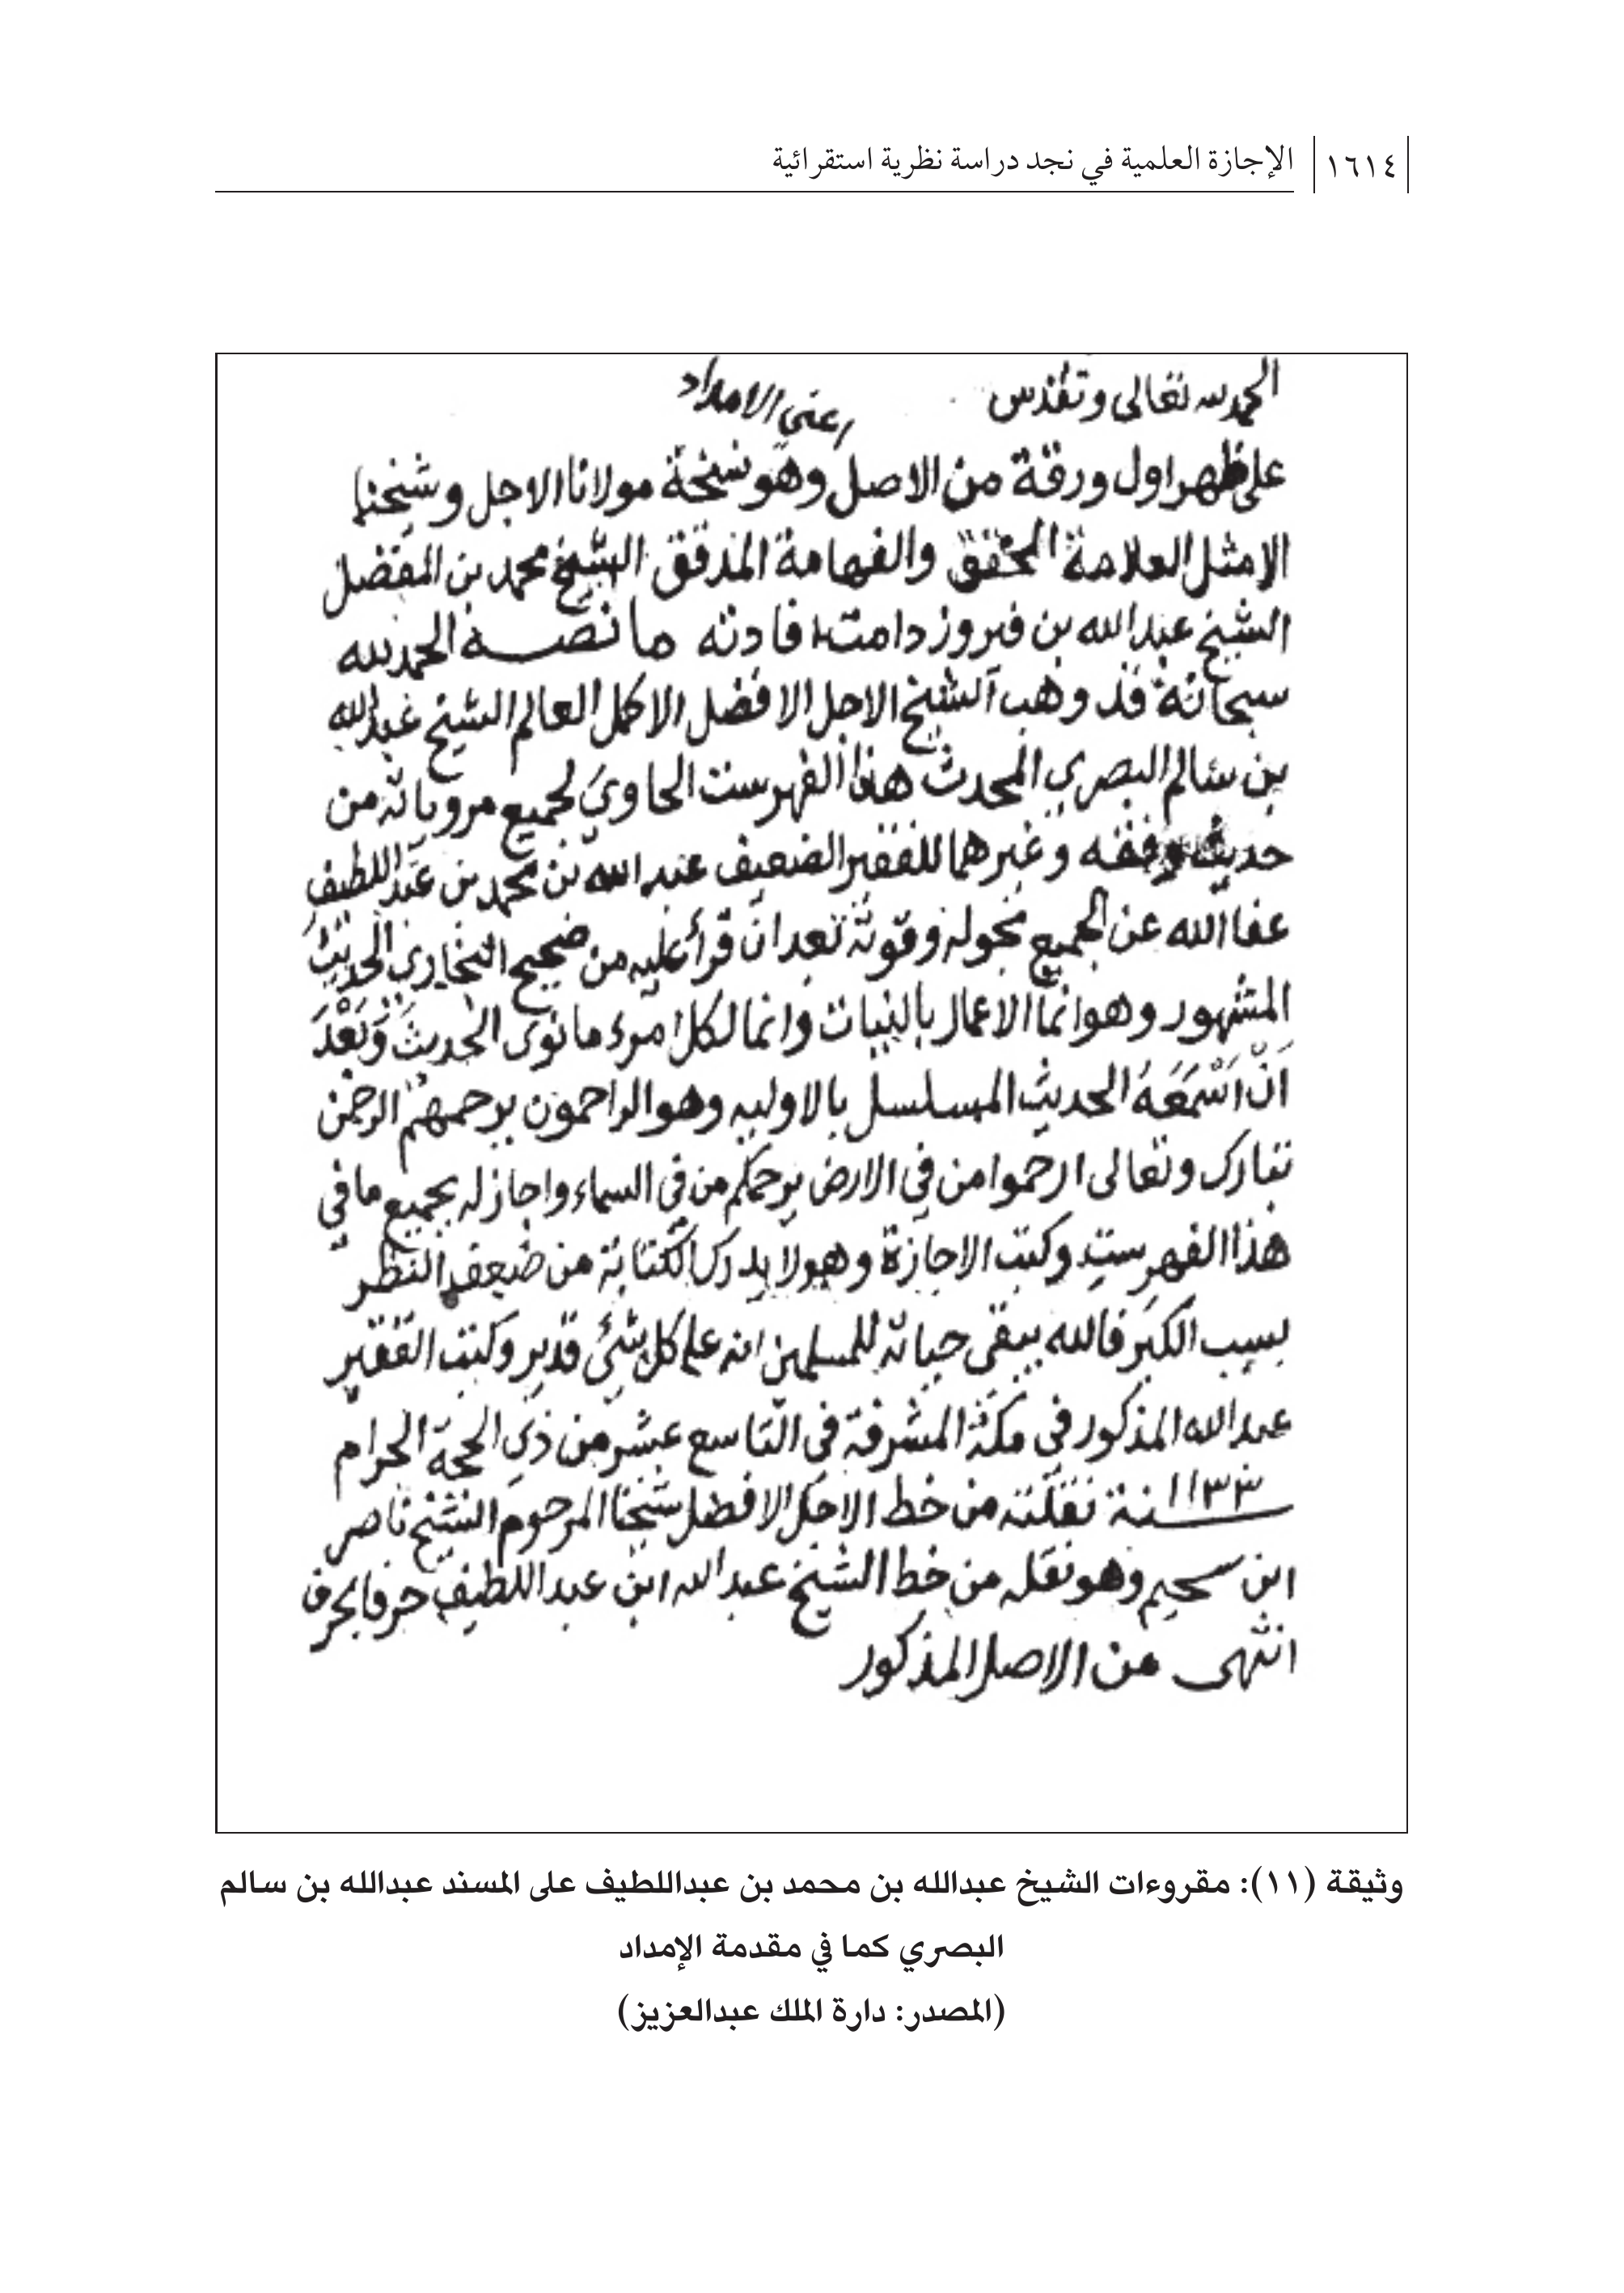 ١٦١٤ الإجازة العلمية في نجد دراسة نظرية استقرائية
الحمد لله تعالى وتقدس
اعنى الامداد
على ظهر اول ورقة من الاصل وهو نسخة مولانا الاجل وشيخنا
الامثل العلامة المحقق والفهامة المدقق الشيخ محمد بن المفضل
الشيخ عبدالله بن فيروز دامت افادته ما نصه الحمد لله
سبحانه قد وهب الشيخ الاجل الافضل الاكمل العالم الشيخ عبدالله
بن سالم البصري المحدث هذا الفهرست الحاوي لجميع مروياته من
حديث وفقه وغيرهما للفقير الضعيف عبد الله بن محمد بن عبداللطيف
عفا الله عن الجميع بحوله وقوته بعد ان قرأ عليه من صحيح البخاري الحديث
المشهور وهو انما الاعمال بالنيات وانما لكل امرء ما نوى الحديث وَبَعْدَ
اَنْ اَسْمَعَهُ الحديث المسلسل بالاوليه وهو الراحمون يرحمهم الرحمن
تبارك وتعالى ارحموا من في الارض يرحمكم من في السماء واجاز له بجميع ما في
هذا الفهرست وكتب الاجازة وهو لا يدرك الكتابة من ضعف النظر
بسبب الكبر فالله يبقى حياته للمسلمين انه على كل شئ قدير وكتب الفقير
عبدالله المذكور في مكة المشرفة في التاسع عشر من ذي الحجة الحرام
سنة ١١٣٣ نقلته من خط الاجل الافضل شيخنا المرحوم الشيخ ناصر
ابن سحيم وهو نقله من خط الشيخ عبدالله ابن عبداللطيف حرفا بحرف
انتهى من الاصل المذكور
وثيقة (١١): مقروءات الشيخ عبدالله بن محمد بن عبداللطيف على المسند عبدالله بن سالم
البصري كما في مقدمة الإمداد
(المصدر: دارة الملك عبدالعزيز)